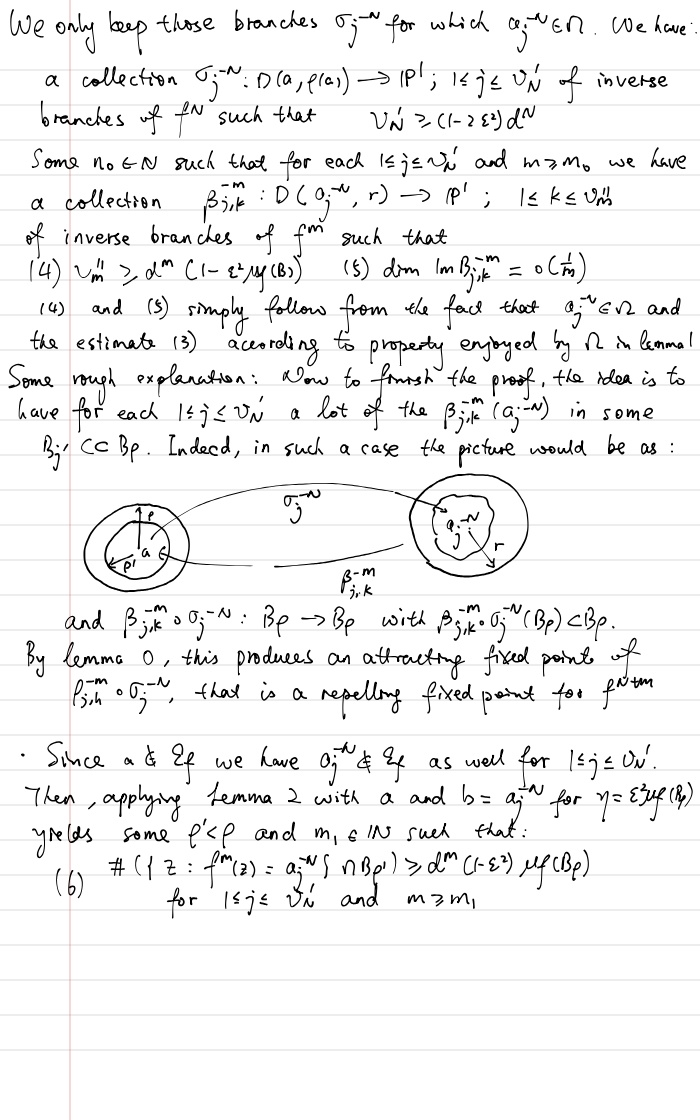 We only keep those branches σ_j^{-N} for which a_j^{-N} ∈ Ω. We have:
a collection σ_j^{-N} : D(a, ρ(a)) → ℙ¹ ; 1 ≤ j ≤ ν_N' of inverse
branches of f^N such that ν_N' ≥ (1-2ε²)d^N
Some n₀ ∈ ℕ such that for each 1≤j≤ν_N' and m≥m₀ we have
a collection β_{j,k}^{-m} : D(a_j^{-N}, r) → ℙ¹ ; 1≤ k ≤ ν_m''
of inverse branches of f^m such that
(4) ν_m'' ≥ d^m (1-ε² μ_f(B_ρ)) (5) diam Im β_{j,k}^{-m} = o(1/m)
(4) and (5) simply follow from the fact that a_j^{-N} ∈ Ω and
the estimate (3) according to property enjoyed by Ω in lemma 1
Some rough explanation: Now to finish the proof, the idea is to
have for each 1≤j≤ν_N' a lot of the β_{j,k}^{-m}(a_j^{-N}) in some
B_ρ' ⊂⊂ B_ρ. Indeed, in such a case the picture would be as :
σ_j^{-N}
ρ
a
ρ'
a_j^{-N}
r
β_{j,k}^{-m}
and β_{j,k}^{-m} ∘ σ_j^{-N} : B_ρ → B_ρ with β_{j,k}^{-m} ∘ σ_j^{-N}(B_ρ) ⊂ B_ρ.
By lemma 0, this produces an attracting fixed point of
β_{j,k}^{-m} ∘ σ_j^{-N}, that is a repelling fixed point for f^{N+m}
· Since a ∉ Σ_f we have a_j^{-N} ∉ Σ_f as well for 1≤j≤ν_N'.
Then, applying Lemma 2 with a and b = a_j^{-N} for η = ε² μ_f(B_ρ)
yields some ρ'<ρ and m₁ ∈ ℕ such that:
(6) #({z : f^m(z) = a_j^{-N}} ∩ B_ρ') ≥ d^m (1-ε²) μ_f(B_ρ)
for 1≤j≤ ν_N' and m ≥ m₁